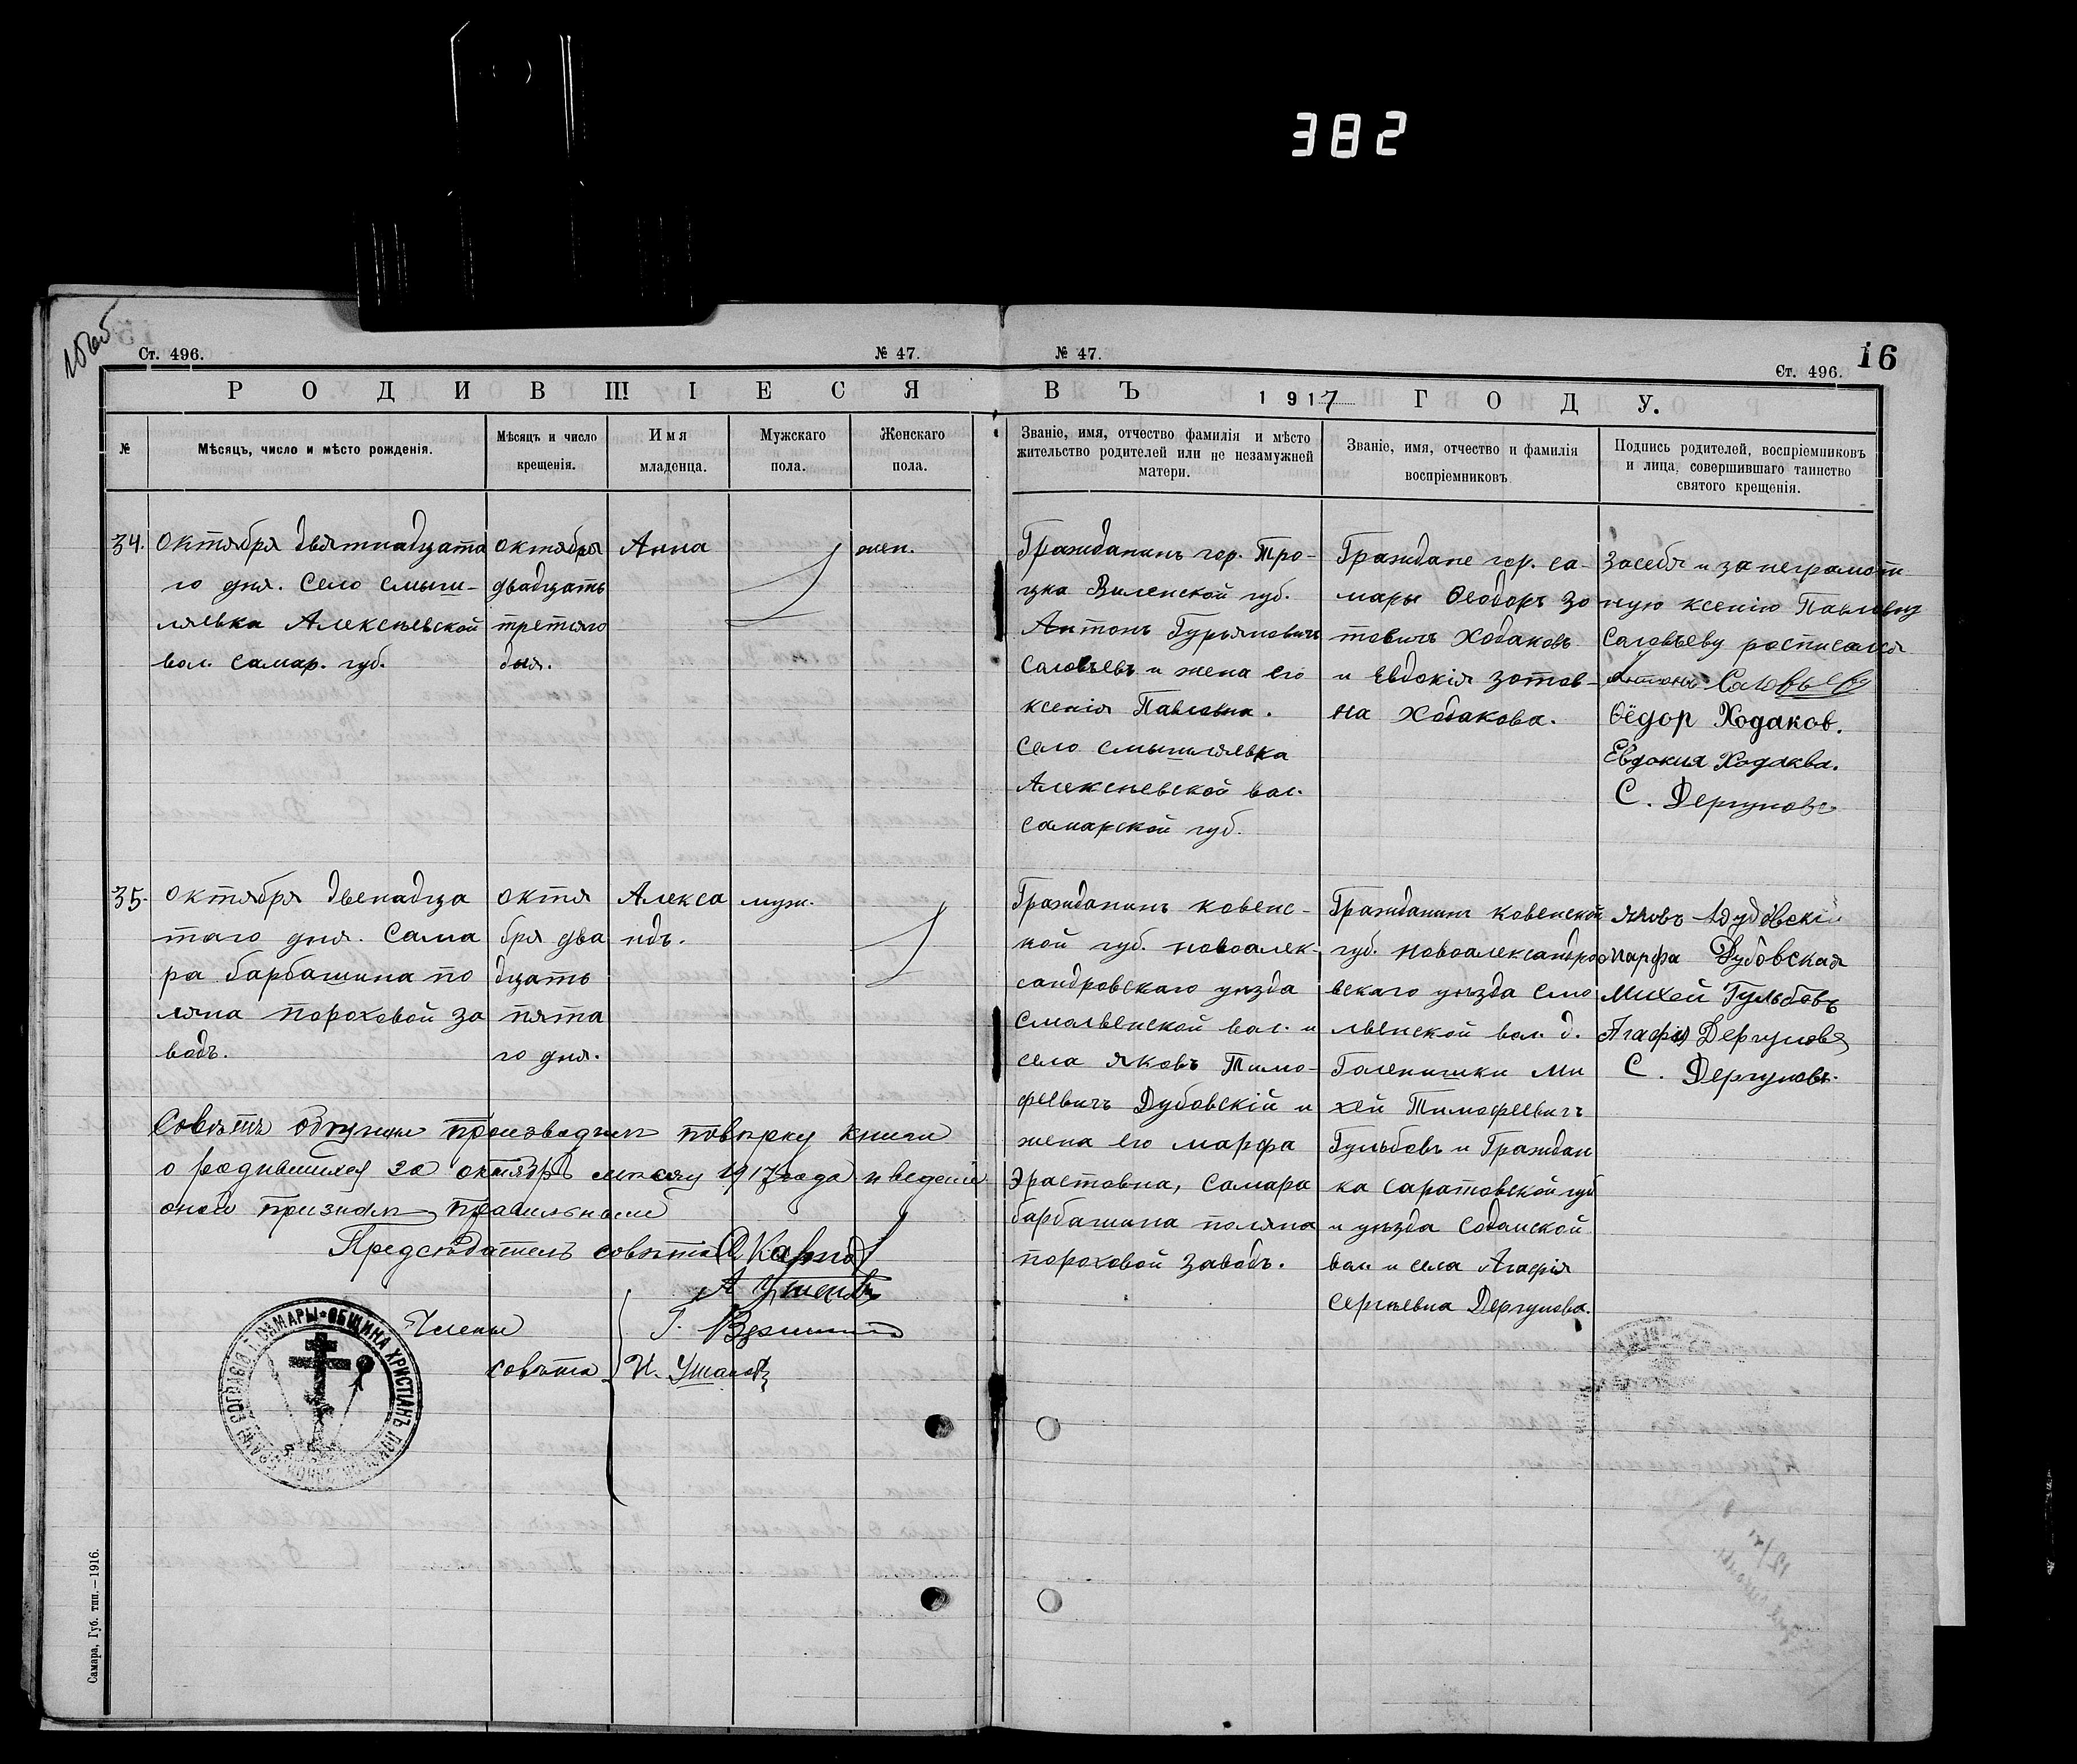 382
Ст. 496.
№ 47.
№ 47.
Ст. 496.
16
РОДИВШІЕСЯ
ВЪ 1917 ГОДУ.
№
Мѣсяцъ, число и мѣсто рожденія.
Мѣсяцъ и число
крещенія.
Имя
младенца.
Мужскаго
пола.
Женскаго
пола.
Званіе, имя, отчество фамилія и мѣсто
жительство родителей или не незамужней
матери.
Званіе, имя, отчество и фамилія
воспріемниковъ
Подпись родителей, воспріемниковъ
и лица, совершившаго таинство
святого крещенія.
34.
Октября двятнадцата
го дня. Село смыш-
ляевка Алексѣевской
вол. самар. губ.
октября
двадцать
третьяго
дня.
Анна
жен.
Гражданинъ гор. Тро-
цка Виленской губ.
Антонъ Гурьяновичъ
Саловьевъ и жена его
ксенія Павловна.
село смышляевка
Алексѣевской вол.
самарской губ.
Граждане гор. са-
мары Ѳеодоръ Зо
товичъ Ходаковъ
и Евдокія зотов-
на Ходакова.
За себя и за неграмот
ную ксенію Павловну
Саловьеву росписался
Антонъ Саловьев
Ѳёдор Ходаков.
Евдокия Ходаква.
С. Дергуновъ
35.
октября двенадца
таго дня. Сама
ра барбашина по
ляна пороховой за
водъ.
октя
бря два
дцать
пята
го дня.
Алекса
ндъ.
муж.
Гражданинъ ковенс-
кой губ. новоалек-
сандровскаго уѣзда
смольвенской вол. и
села яковъ Тимо-
феевичъ Дубовскій и
жена его марфа
Эрастовна, Самара
барбашина поляна
пороховой заводъ.
Гражданинъ ковенской
губ. новоалександро
вскаго уѣзда смо
львенской вол. д.
Голенишки Ми
хей Тимофеевичъ
Гульбовъ и Граждан
ка саратовской губ
и уѣзда содомской
вол и села Агафія
сергѣевна Дергунова.
яковъ Дубовскі
марфа Дубовская
Михей Гульбовъ
Агафія Дергунова
С. Дергуновъ
Совѣтъ общины производил повѣрку книги
о родившихся за октябрь месяц 1917 года и ведение
оной признал правильным
Председатель совѣта
Члены
совѣта
И. Ушаковъ
Г. САМАРЫ * ОБЩИНА ХРИСТІАНЪ
Самара, Губ. тип.—1916.